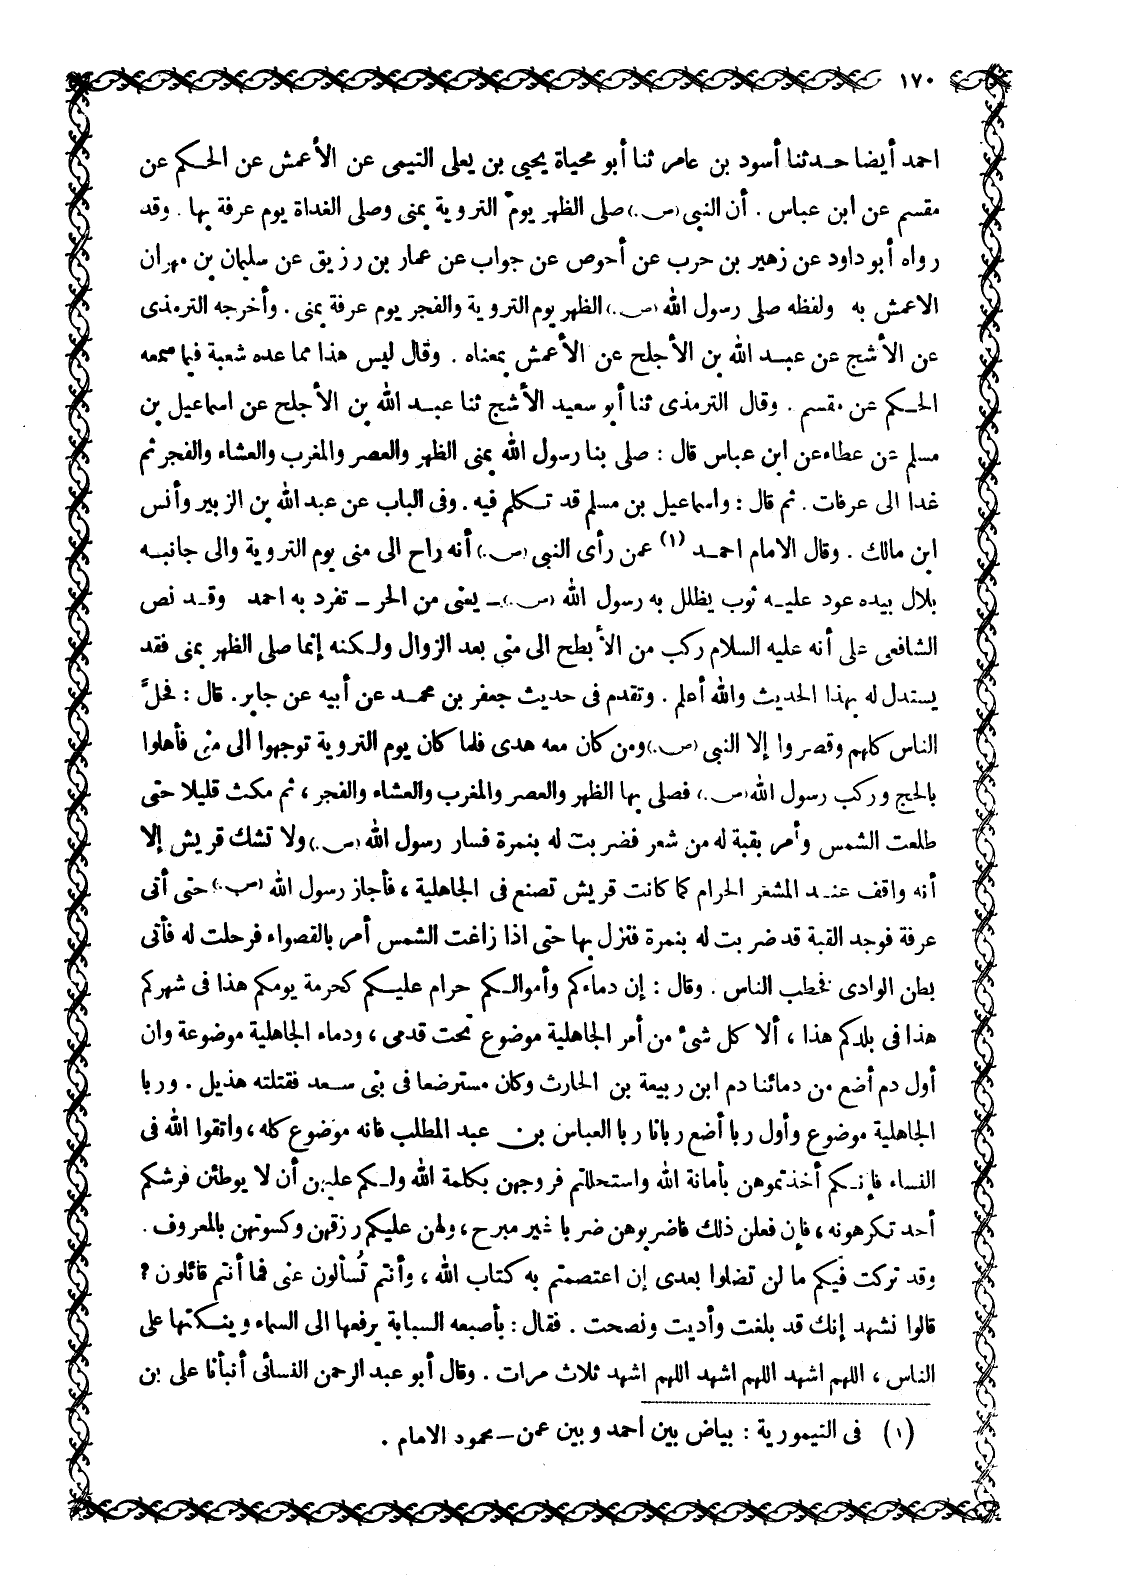 ١٧٠
احمد أيضا حدثنا أسود بن عامر ثنا أبو محياة يحيى بن يعلى التيمى عن الأعمش عن الحكم عن
مقسم عن ابن عباس . أن النبى (ص.) صلى الظهر يوم التروية بمنى وصلى الغداة يوم عرفة بها . وقد
رواه أبو داود عن زهير بن حرب عن أحوص عن جواب عن عمار بن رزيق عن سليمان بن مهران
الاعمش به ولفظه صلى رسول الله (ص.) الظهر يوم التروية والفجر يوم عرفة بمنى . وأخرجه الترمذى
عن الأشج عن عبد الله بن الأجلح عن الأعمش بمعناه . وقال ليس هذا مما عده شعبة فيما سمعه
الحكم عن مقسم . وقال الترمذى ثنا أبو سعيد الأشج ثنا عبد الله بن الأجلح عن اسماعيل بن
مسلم عن عطاء عن ابن عباس قال : صلى بنا رسول الله بمنى الظهر والعصر والمغرب والعشاء والفجر ثم
غدا الى عرفات . ثم قال : واسماعيل بن مسلم قد تكلم فيه . وفى الباب عن عبد الله بن الزبير وأنس
ابن مالك . وقال الامام احمد (١) عمن رأى النبى (ص.) أنه راح الى منى يوم التروية والى جانبه
بلال بيده عود عليه ثوب يظلل به رسول الله (ص.) ـ يعنى من الحر ـ تفرد به احمد وقد نص
الشافعى على أنه عليه السلام ركب من الأبطح الى منى بعد الزوال ولكنه إنما صلى الظهر بمنى فقد
يستدل له بهذا الحديث والله أعلم . وتقدم فى حديث جعفر بن محمد عن أبيه عن جابر . قال : فحلَّ
الناس كلهم وقصروا إلا النبى (ص.) ومن كان معه هدى فلما كان يوم التروية توجهوا الى منى فأهلوا
بالحج وركب رسول الله (ص.) فصلى بها الظهر والعصر والمغرب والعشاء والفجر ، ثم مكث قليلا حتى
طلعت الشمس وأمر بقبة له من شعر فضربت له بنمرة فسار رسول الله (ص.) ولا تشك قريش إلا
أنه واقف عند المشعر الحرام كما كانت قريش تصنع فى الجاهلية ، فأجاز رسول الله (ص.) حتى أتى
عرفة فوجد القبة قد ضربت له بنمرة فنزل بها حتى اذا زاغت الشمس أمر بالقصواء فرحلت له فأتى
بطن الوادى فخطب الناس . وقال : إن دماءكم وأموالكم حرام عليكم كحرمة يومكم هذا فى شهركم
هذا فى بلدكم هذا ، ألا كل شىء من أمر الجاهلية موضوع تحت قدمى ، ودماء الجاهلية موضوعة وان
أول دم أضع من دمائنا دم ابن ربيعة بن الحارث وكان مسترضعا فى بنى سعد فقتلته هذيل . وربا
الجاهلية موضوع وأول ربا أضع ربانا ربا العباس بن عبد المطلب فانه موضوع كله ، واتقوا الله فى
النساء فإنكم أخذتموهن بأمانة الله واستحللتم فروجهن بكلمة الله ولكم عليهن أن لا يوطئن فرشكم
أحد تكرهونه ، فإن فعلن ذلك فاضربوهن ضربا غير مبرح ، ولهن عليكم رزقهن وكسوتهن بالمعروف .
وقد تركت فيكم ما لن تضلوا بعدى إن اعتصمتم به كتاب الله ، وأنتم تُسألون عنى فما أنتم قائلون ؟
قالوا نشهد إنك قد بلغت وأديت ونصحت . فقال : بأصبعه السبابة يرفعها الى السماء وينكتها على
الناس ، اللهم اشهد اللهم اشهد اللهم اشهد ثلاث مرات . وقال أبو عبد الرحمن النسائى أنبأنا على بن
(١) فى التيمورية : بياض بين احمد وبين عمن ـ محمود الامام .